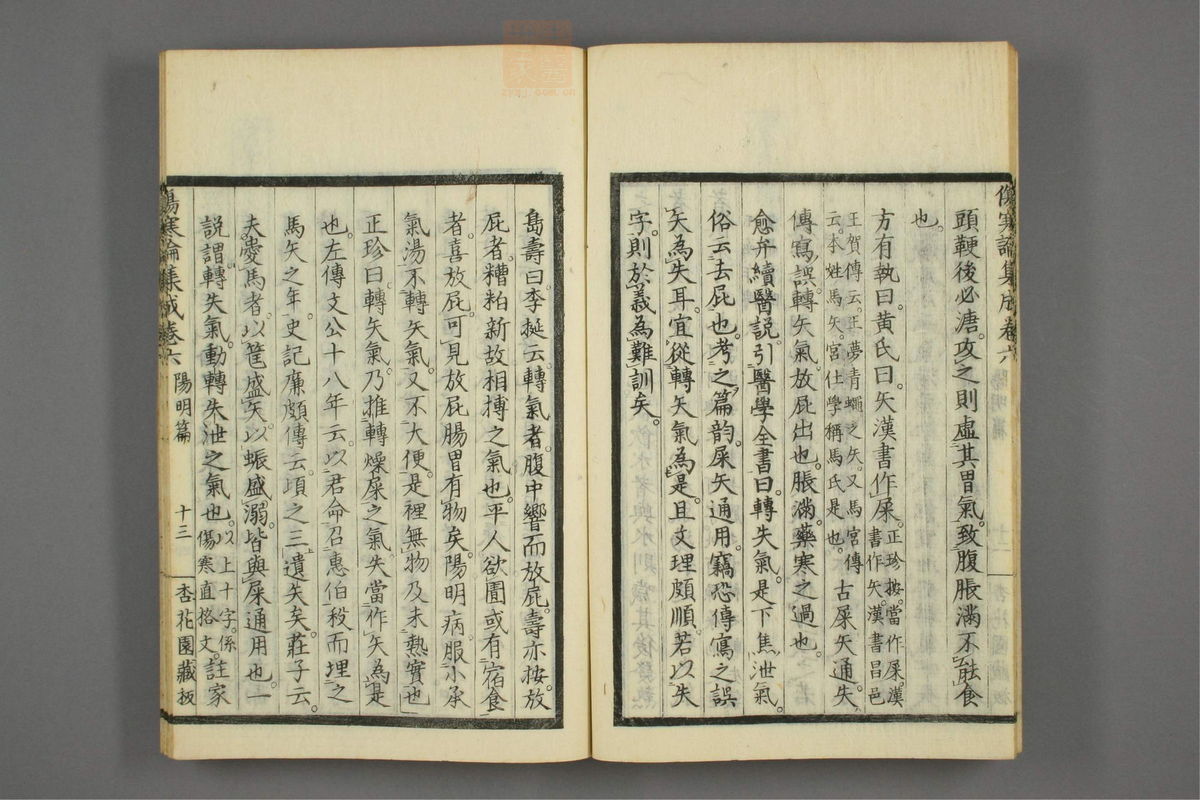 傷寒論集成卷六
頭鞕後必溏。攻之則虛其胃氣。致腹脹滿不能食
也。
方有執曰。黃氏曰。矢漢書作屎。正珍按。當作屎。漢
書作矢。漢書昌邑
王賀傳云。王夢青蠅之矢。又馬宮傳
云。本姓馬矢。宮仕學稱馬氏是也。古屎矢通。失
傳寫誤。轉矢氣。放屁出也。脹滿。藥寒之過也。
愈弁續醫說。引醫學全書曰。轉失氣。是下焦泄氣。
俗云去屁也。考之篇韵。屎矢通用。竊恐傳寫之誤
矢為失耳。宜從轉矢氣為是。且文理頗順。若以失
字。則於義為難訓矣。
島壽曰。李挻云。轉氣者。腹中響而放屁。壽亦按。放
屁者。糟粕新故相搏之氣也。平人欲圊。或有宿食
者。喜放屁。可見放屁腸胃有物矣。陽明病。服小承
氣湯。不轉矢氣。又不大便。是裡無物及未熱實也
正珍曰。轉矢氣。乃推轉燥屎之氣。失當作矢為是
也。左傳文公十八年云。以君命召惠伯。殺而埋之
馬矢之年。史記廉頗傳云。頃之三遺矢矣。莊子云。
夫愛馬者。以筐盛矢。以蜄盛溺。皆與屎通用也。一
說謂轉失氣。動轉失泄之氣也。以上十字。係
傷寒直格文。註家
傷寒論集成卷六 陽明篇 十三 杏花園藏板